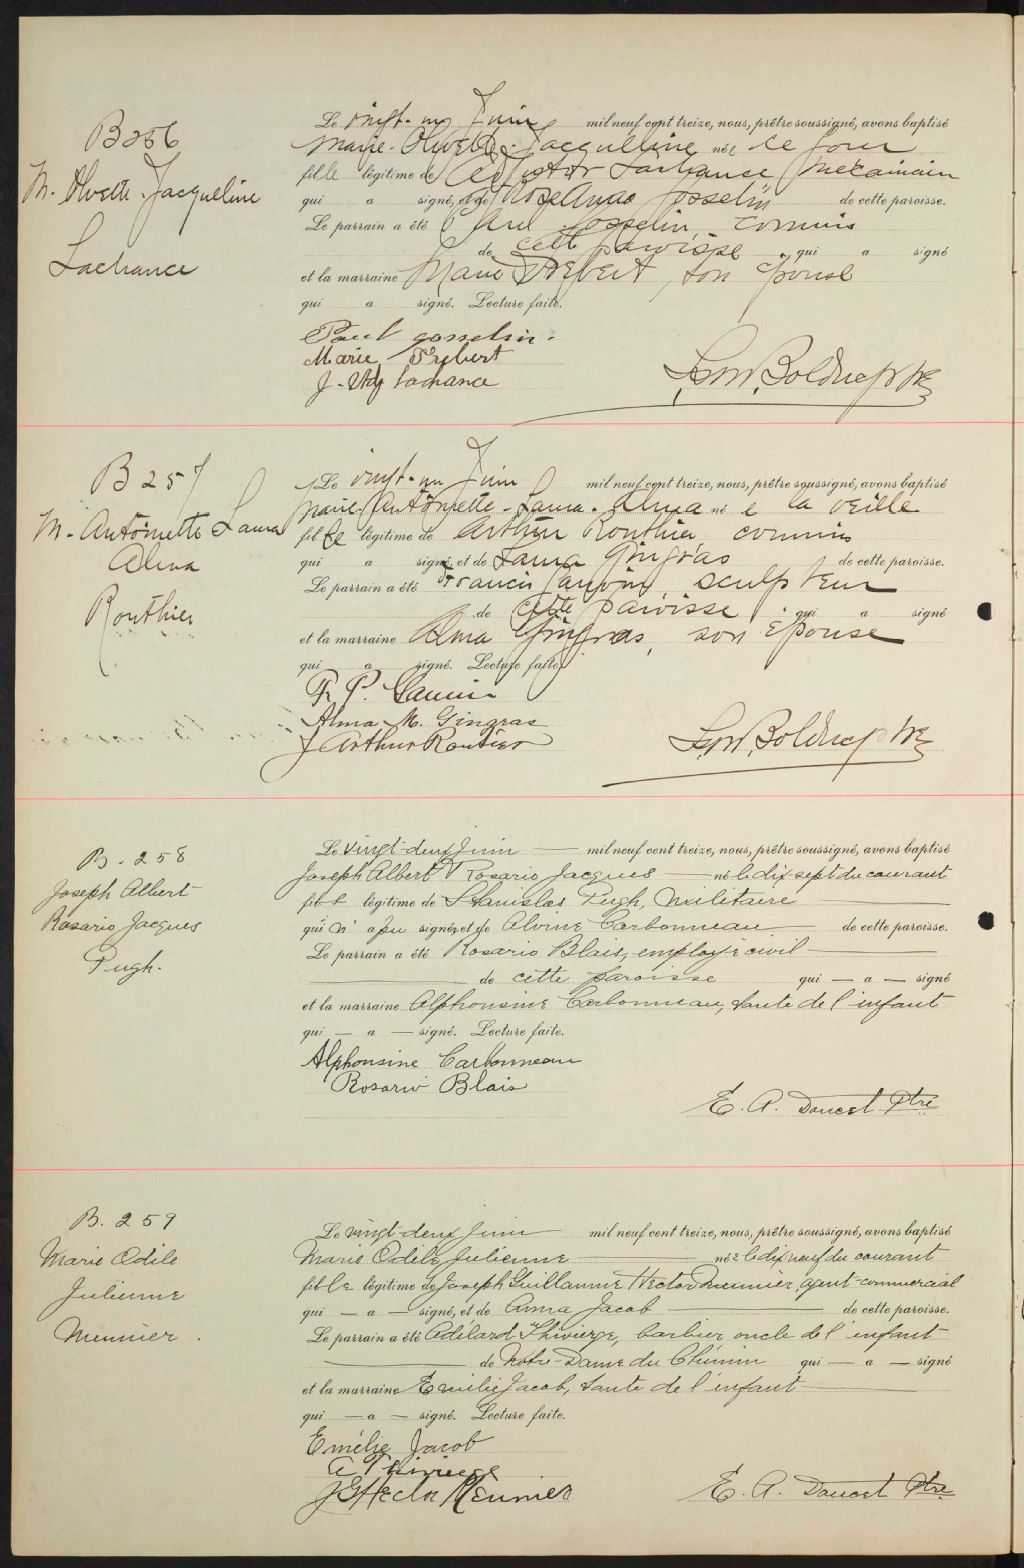 B 256
M. Olvette Jacqueline
Lachance
Le vingt-un Juin mil neuf cent treize, nous, prêtre soussigné, avons baptisé
Marie-Olvette-Jacqueline née ce jour
fille légitime de Lachance mécanicien
qui a signé, et de Rose Anna Gosselin de cette paroisse.
Le parrain a été Paul Gosselin, commis
de cette paroisse qui a signé
et la marraine Marie Hébert, son épouse
qui a signé. Lecture faite.
Paul Gosselin.
Marie Hébert
J. Adj Lachance
Bolduc ptre
B 257
M. Antoinette Laura
Alma
Routhier
Le vingt-un Juin mil neuf cent treize, nous, prêtre soussigné, avons baptisé
Marie-Antoinette-Laura-Alma née la veille
fille légitime de Arthur Routhier, commis
qui a signé, et de Laura Gingras de cette paroisse.
Le parrain a été Francis sculpteur
de cette paroisse qui a signé
et la marraine Alma Gingras, son épouse
qui a signé. Lecture faite
Fr P.
Alma M. Gingras
J Arthur Routier
Bolduc ptre
B. 258
Joseph Albert
Rosario Jacques
Pugh.
Le vingt-deux Juin mil neuf cent treize, nous, prêtre soussigné, avons baptisé
Joseph Albert Rosario Jacques né le dix sept du courant
fils légitime de Stanislas Pugh, militaire
qui n'a pu signer et de Alvine Carbonneau de cette paroisse.
Le parrain a été Rosario Blais, employé civil
de cette paroisse qui — a — signé
et la marraine Alphonsine Carbonneau, tante de l'enfant
qui — a — signé. Lecture faite.
Alphonsine Carbonneau
Rosario Blais
E. A. Doucet Ptre
B. 259
Marie Odile
Julienne
Meunier.
Le vingt-deux Juin mil neuf cent treize, nous, prêtre soussigné, avons baptisé
Marie Odile Julienne née le dix neuf du courant
fille légitime de Joseph Guillaume Hector Meunier, agent commercial
qui — a — signé, et de Anna Jacob de cette paroisse.
Le parrain a été Adélard Thivierge, barbier oncle de l'enfant
de Notre-Dame du Chemin qui — a — signé
et la marraine Emélie Jacob, tante de l'enfant
qui — a — signé. Lecture faite.
Emélie Jacob
A Thivierge
J G Hector Meunier
E. A. Doucet Ptre